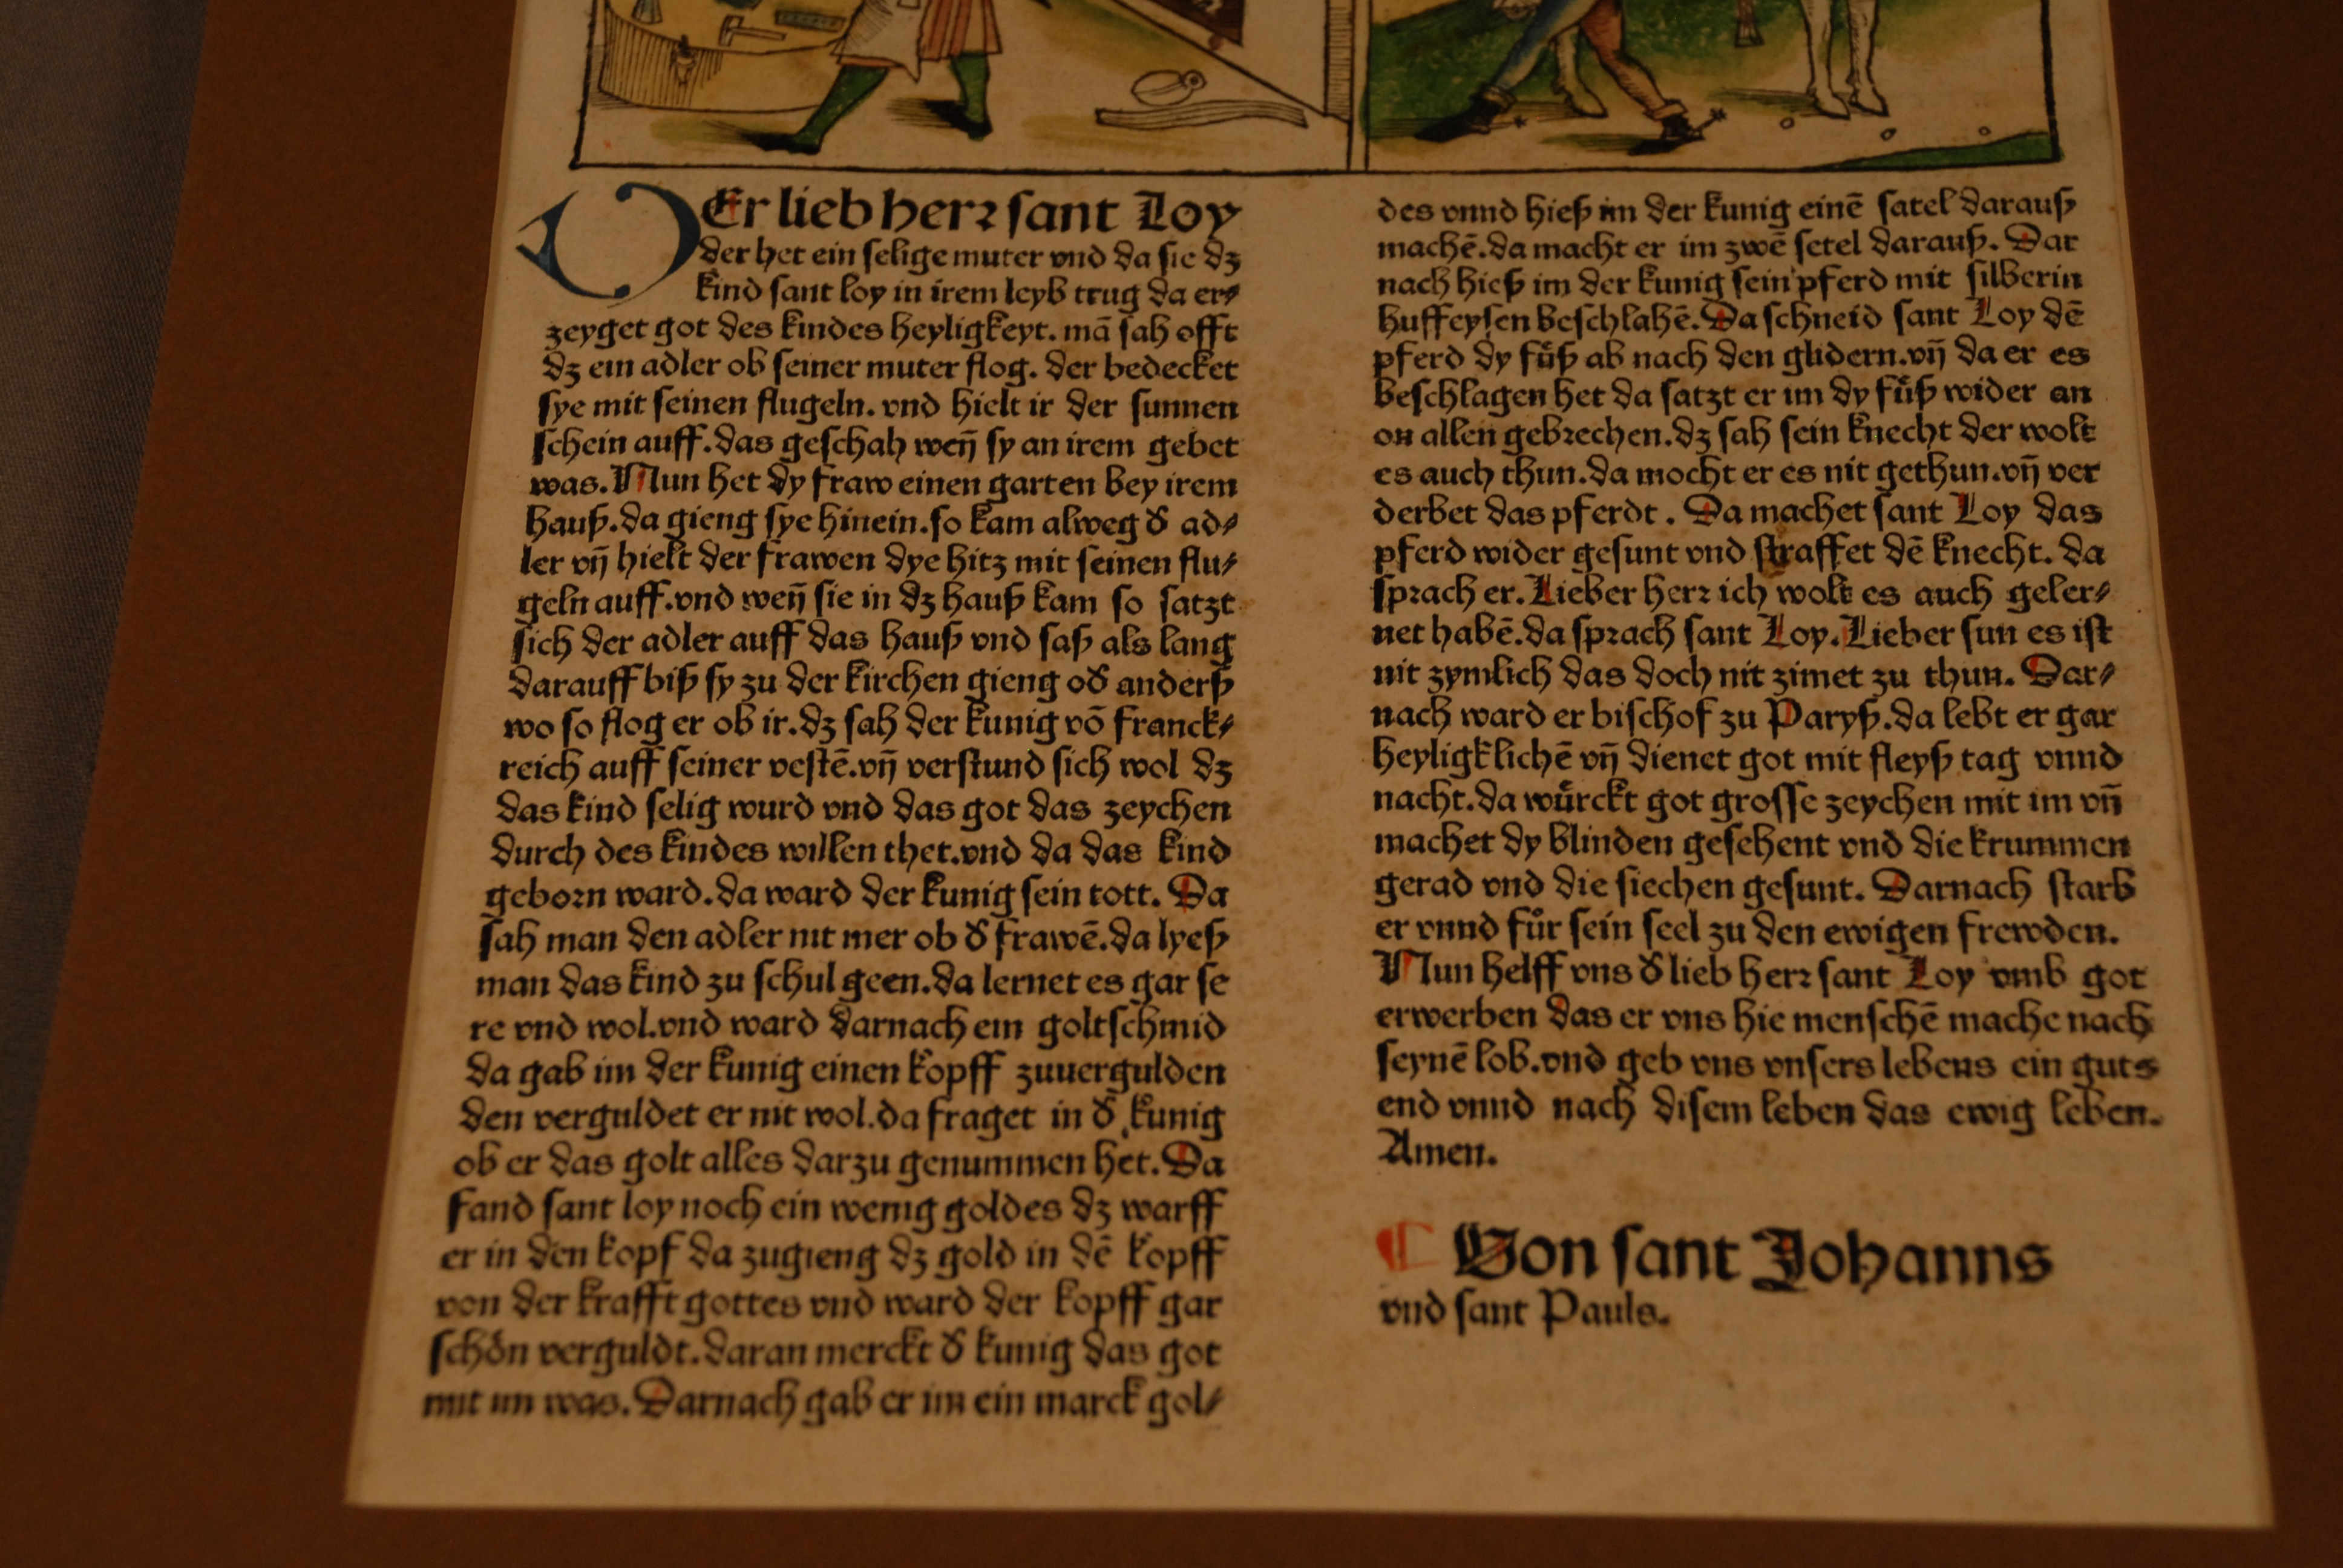 DEr lieb herꝛ sant Loy
der het ein selige muter vnd da sie dz
kind sant loy in irem leyb trug da er⸗
zeyget got des kindes heyligkeyt. mā sah offt
dz ein adler ob seiner muter flog. der bedecket
sye mit seinen flugeln. vnd hielt ir der sunnen
schein auff. das geschah weñ sy an irem gebet
was. Nun het dy fraw einen garten bey irem
hauß. da gieng sye hinein. so kam alweg ď ad⸗
ler vñ hielt der frawen dye hitz mit seinen flu⸗
geln auff. vnd weñ sie in dz hauß kam so satzt
sich der adler auff das hauß vnd saß als lang
darauff biß sy zu der kirchen gieng oď anderß
wo so flog er ob ir. dz sah der kunig vō franck⸗
reich auff seiner vestē. vñ verstund sich wol dz
das kind selig wurd vnd das got das zeychen
durch des kindes willen thet. vnd da das kind
geboꝛn ward. da ward der kunig sein tott. Da
sah man den adler nit mer ob ď frawē. da lyeß
man das kind zu schul geen. da lernet es gar se
re vnd wol. vnd ward darnach ein goltschmid
da gab im der kunig einen kopff zuuergulden
den verguldet er nit wol. da fraget in ď kunig
ob er das golt alles darzu genummen het. Da
fand sant loy noch ein wenig goldes dz warff
er in den kopf da zugieng dz gold in dē kopff
von der krafft gottes vnd ward der kopff gar
schoͤn verguldt. daran merckt ď kunig das got
mit im was. Darnach gab er im ein marck gol⸗
des vnnd hieß im der kunig einē satel darauß
machē. da macht er im zwē setel darauß. Dar
nach hieß im der kunig sein pferd mit silberin
huffeysen beschlahē. Da schneid sant Loy dē
pferd dy fuͤß ab nach den glidern. vñ da er es
beschlagen het da satzt er im dy fuͤß wider an
on allen gebꝛechen. dz sah sein knecht der wolt
es auch thun. da mocht er es nit gethun. vñ ver
derbet das pferdt. Da machet sant Loy das
pferd wider gesunt vnd straffet dē knecht. da
spꝛach er. Lieber herꝛ ich wolt es auch geler⸗
net habē. da spꝛach sant Loy. Lieber sun es ist
nit zymlich das doch nit zimet zu thun. Dar⸗
nach ward er bischof zu Paryß. da lebt er gar
heyligklichē vñ dienet got mit fleyß tag vnnd
nacht. da wuͤrckt got grosse zeychen mit im vñ
machet dy blinden gesehent vnd die krummen
gerad vnd die siechen gesunt. Darnach starb
er vnnd fuͦr sein seel zu den ewigen frewden.
Nun helff vns ď lieb herꝛ sant Loy vmb got
erwerben das er vns hie menschē mache nach
seynē lob. vnd geb vns vnsers lebens ein guts
end vnnd nach disem leben das ewig leben.
Amen.
¶ Von sant Johanns
vnd sant Pauls.